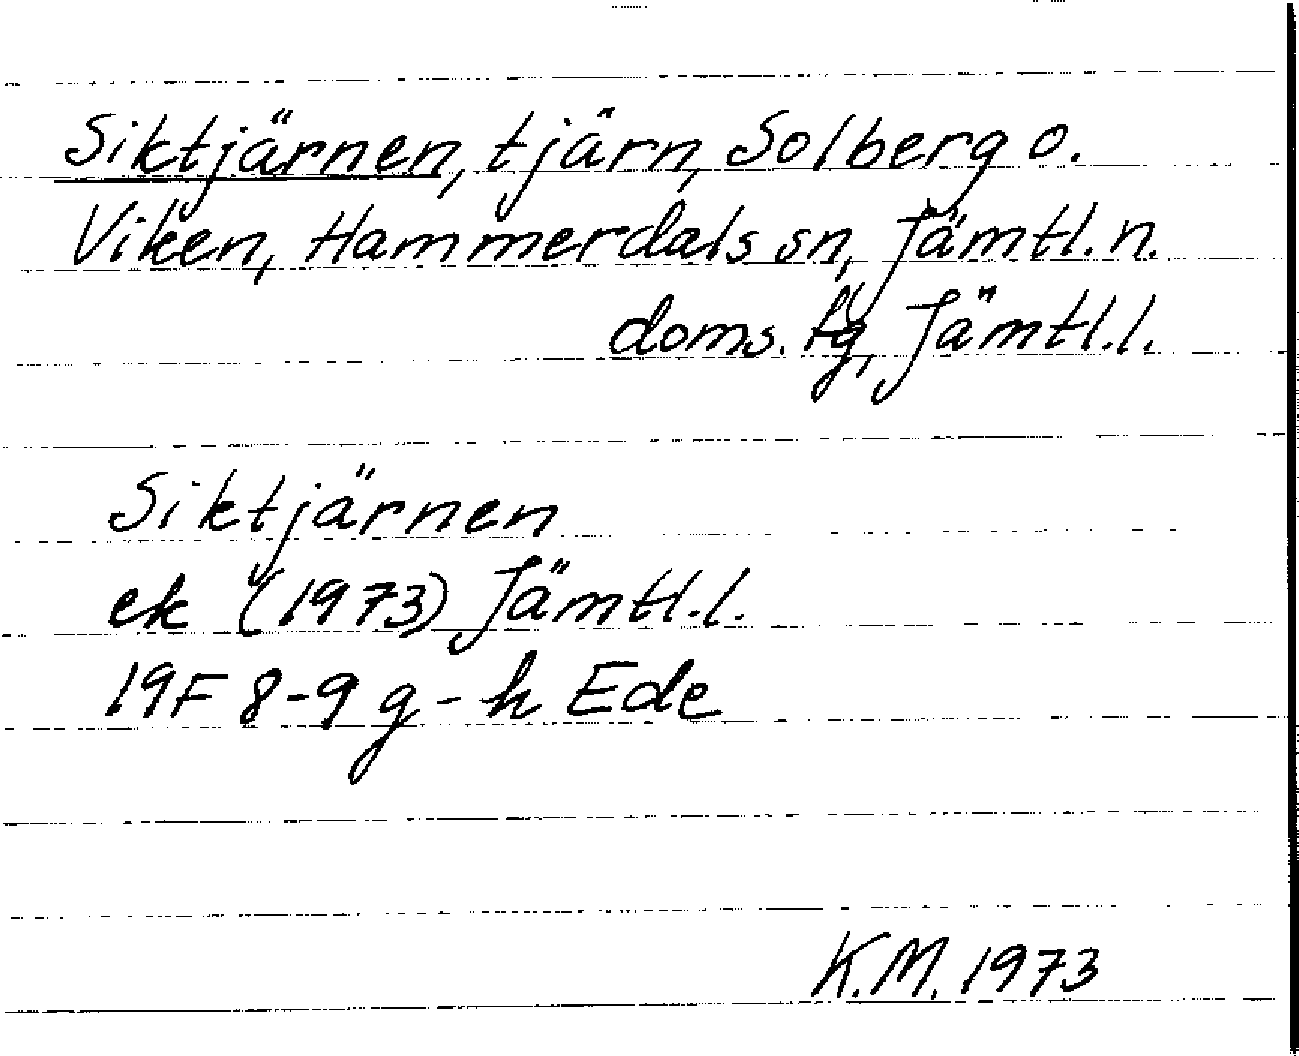 Siktjärnen, tjärn, Solberg o.
Viken, Hammerdals sn, Jämtl. n.
doms. tg, Jämtl. l.
Siktjärnen
ek (1973) Jämtl. l.
19F 8-9 g-h Ede
K.M. 1973